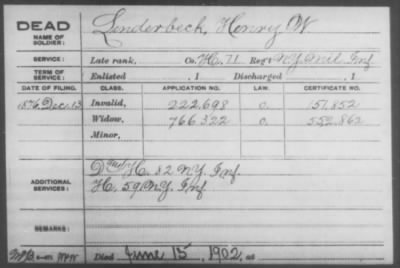 DEAD
NAME OF SOLDIER: Lenderbeck, Henry W
SERVICE: Late rank, Co. H. 71 Reg't N.Y. Mil Inf
TERM OF SERVICE: Enlisted , 1 Discharged , 1
DATE OF FILING. CLASS. APPLICATION NO. LAW. CERTIFICATE NO.
1876 Dec. 13 Invalid, 222,698 O. 151,852
Widow, 766322 O. 552,862
Minor,
ADDITIONAL SERVICES: D H. 82 N.Y. Inf.
H. 59 N.Y. Inf
REMARKS:
Died June 15, 1902, at